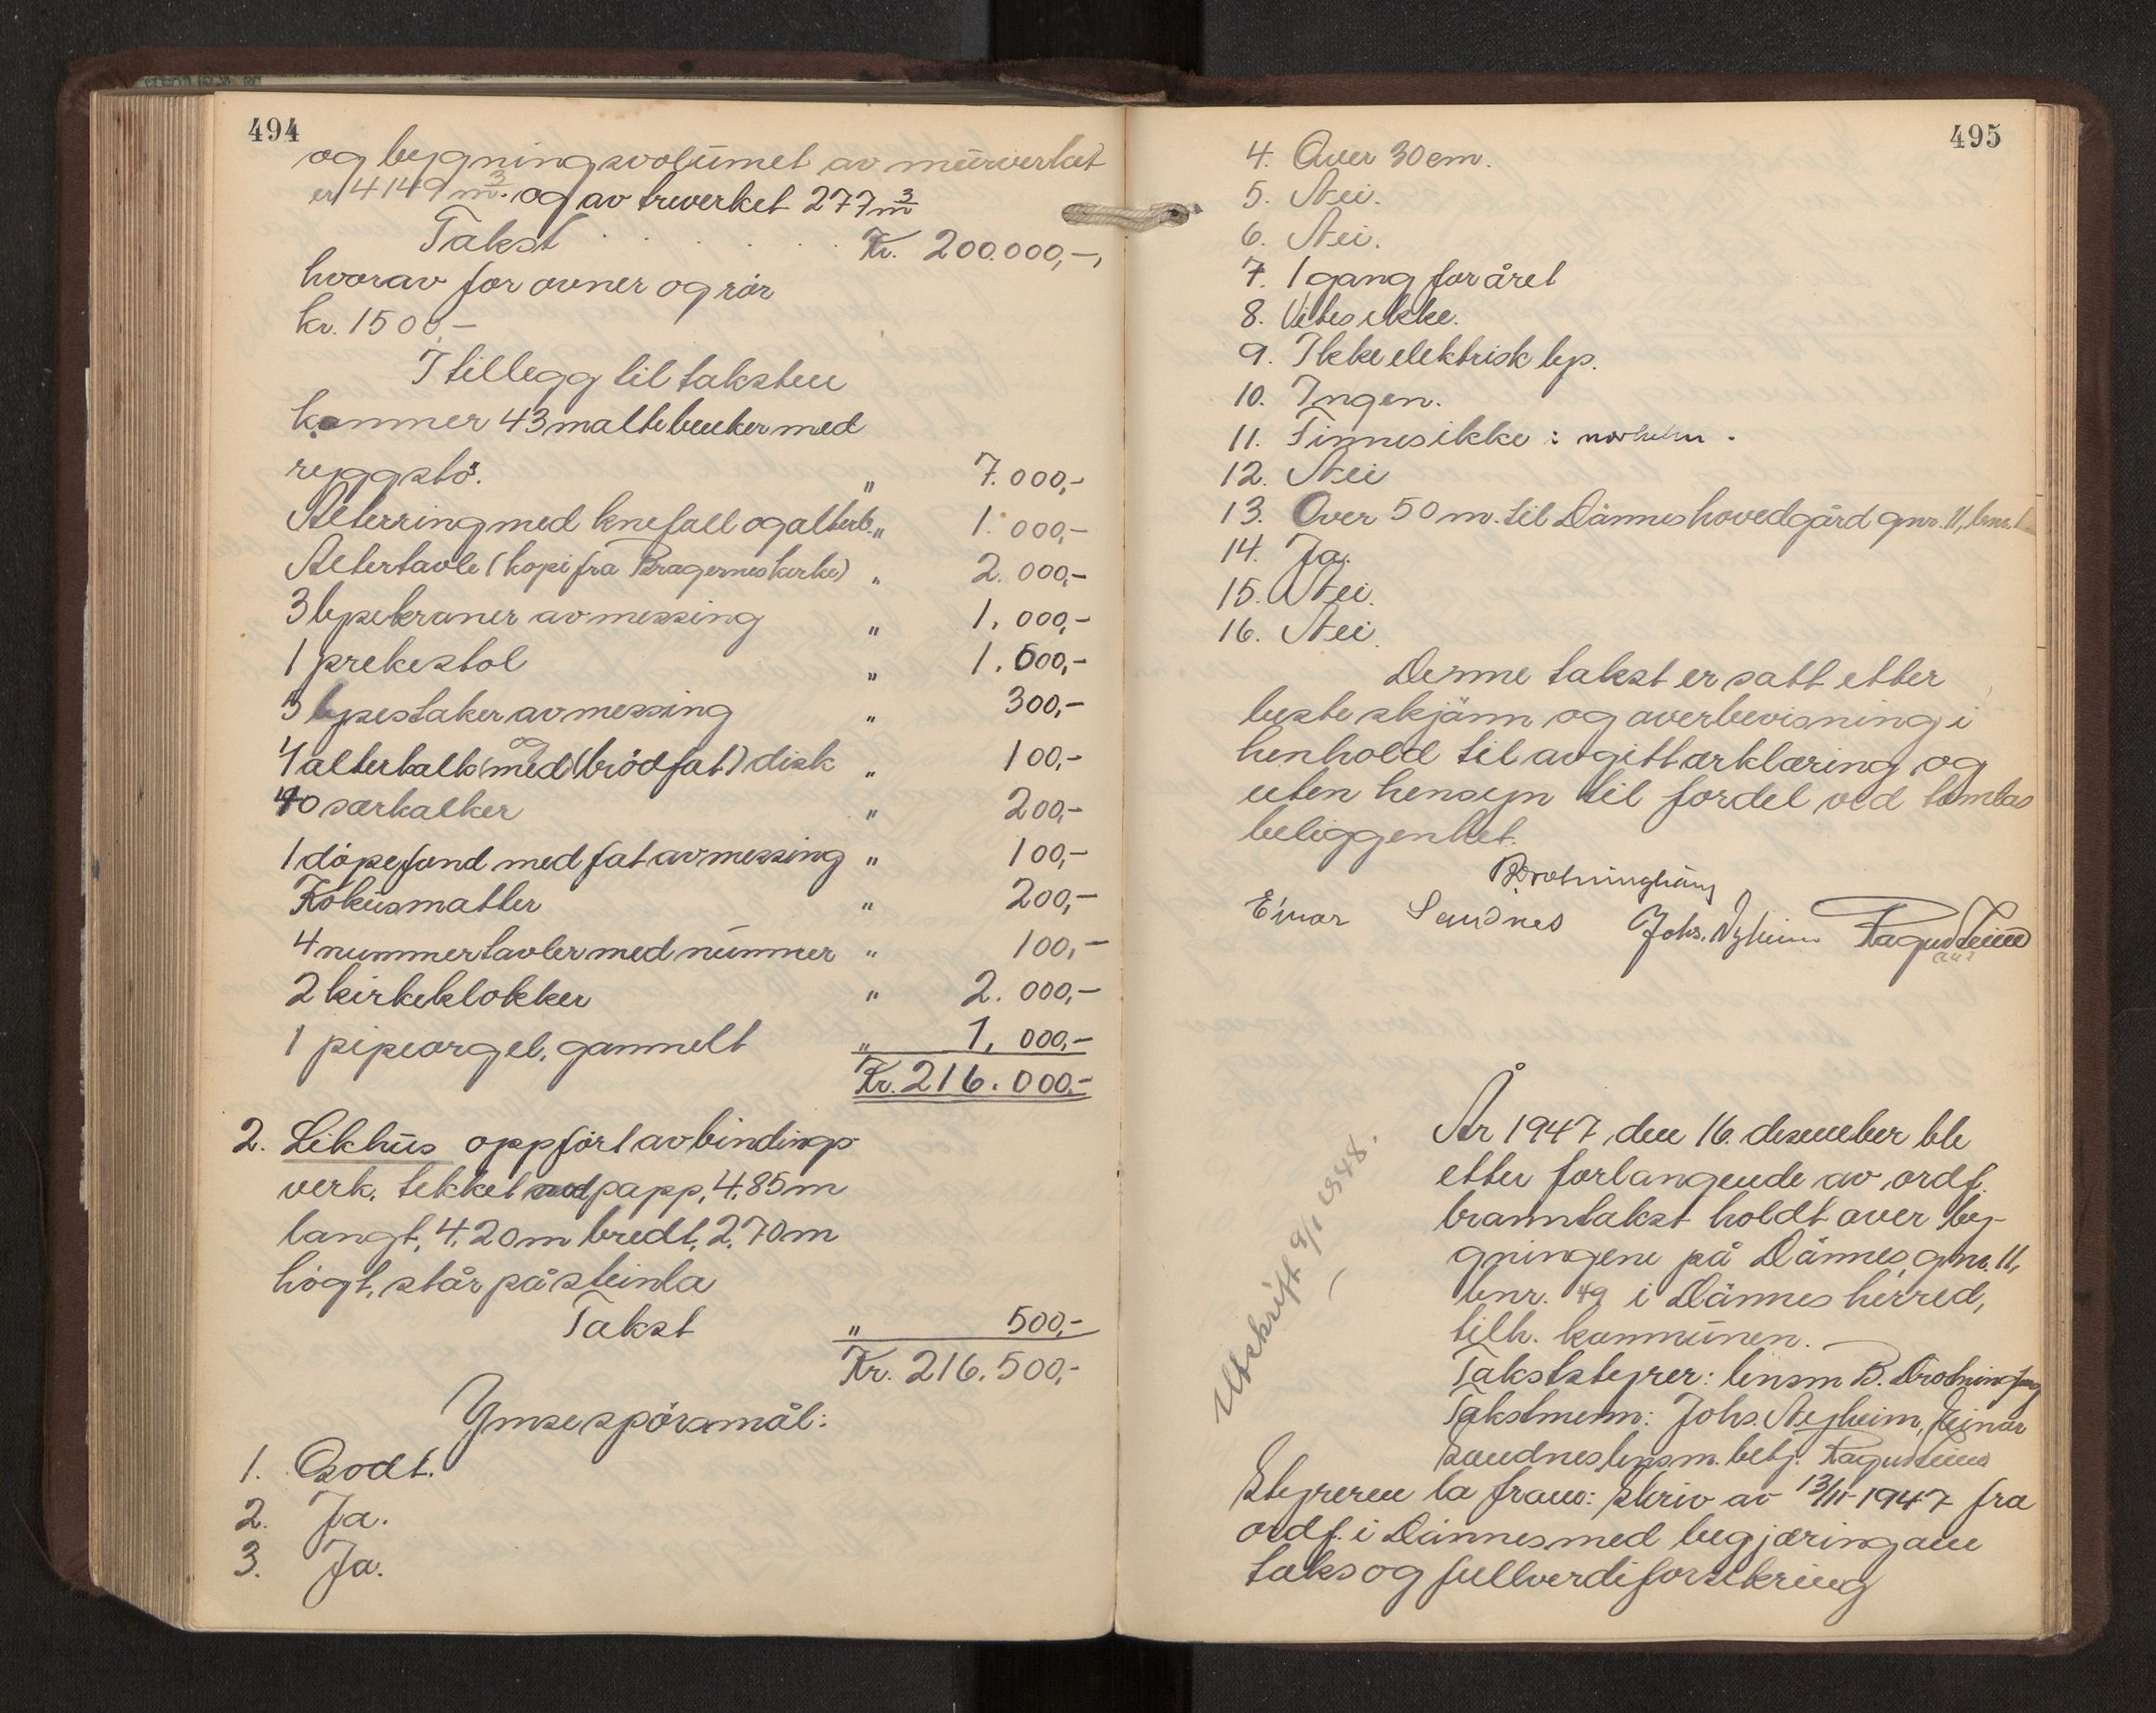 494
og bygningsvolumet av murverket
er 4149 m³. og av treverket 277 m³
Takst . . . . . Kr. 200.000,-,
hvorav for ovner og rör
kr. 1500,-
I tillegg til taksten
kommer 43 malte benker med
ryggstö. " 7.000,-
Alterring med knefall og alterb. " 1.000,-
Altertavle (kopi fra Bragernes kirke) " 2.000,-
3 lysekroner av messing " 1,000,-
1 prekestol " 1.500,-
3 lysestaker av messing " 300,-
1 alterkalk og med (brödfat) disk " 100,-
40 særkalker " 200,-
1 döpefond med fat av messing " 100,-
Kokusmatter " 200,-
4 nummertavler med nummer " 100,-
2 kirkeklokker " 2.000,-
1 pipeorgel, gammelt " 1,000,-
Kr. 216.000,-
2. Likhus oppfört av bindings
verk, tekket med papp, 4,85 m
langt, 4,20 m bredt, 2,70 m
högt, står på steinla
Takst " 500,-
Kr. 216.500,-
Ymse spörsmål:
1. Godt.
2. Ja.
3. Ja.
495
4. Over 30 cm.
5. Nei.
6. Nei.
7. 1 gang for året
8. Vites ikke.
9. Ikke elektrisk lys.
10. Ingen.
11. Finnes ikke :
12. Nei
13. Over 50 m. til Dönnes hovedgård gnr. 11, bnr. 1
14. Ja.
15. Nei.
16. Nei.
Denne takst er satt etter
beste skjönn og overbevisning i
henhold til avgitt erklæring og
uten hensyn til fordel ved tomtas
beliggenhet.
B. Drotninghaug
Einar Sandnes Johs. Nyheim
År 1947 den 16. desember ble
etter forlangende av ordf.
branntakst holdt over byg-
gningene på Dönnes, gnr. 11,
bnr. 49 i Dönnes herred,
tilh. kommunen.
Takststyrer: lensm B. Drotninghaug
Takstmenn: Johs. Nyheim, Einar
Sandnes, lensm. betj.
Styreren la fram: Skriv av 13/11-1947 fra
ordf. i Dönnes med begjæring om
taks og fullverdiforsikring
Utskrift 9/1 1948.